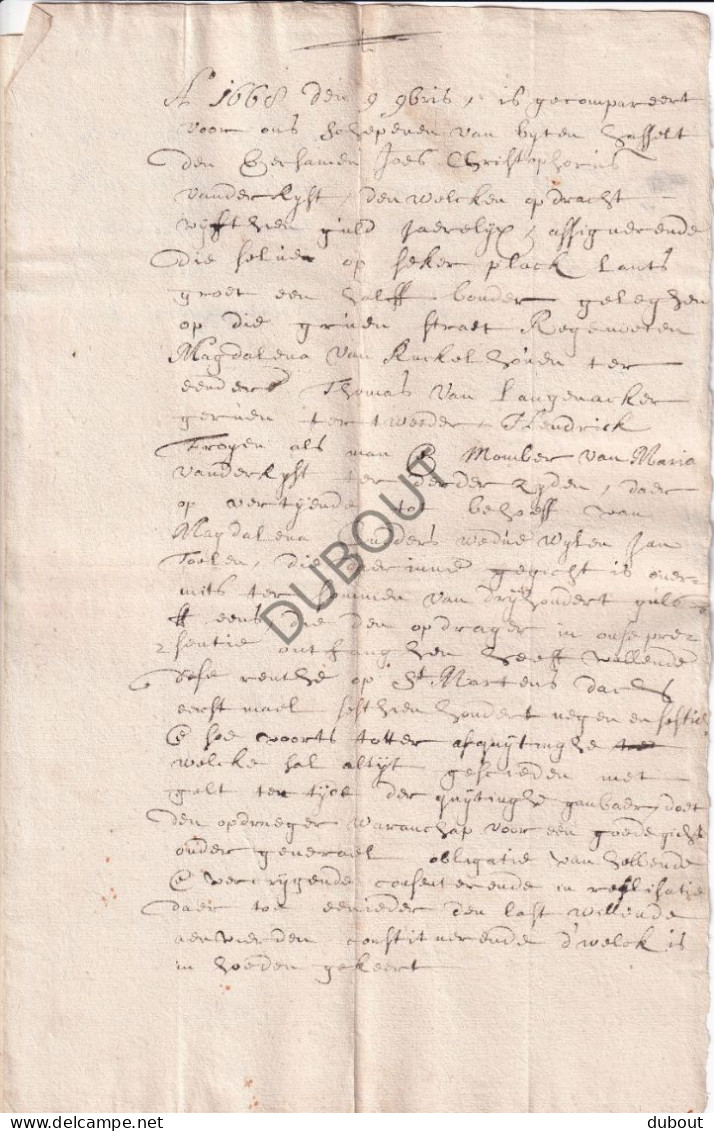 A° 1668 den 9 9bris, is gecompareert
voor ons schepenen van byten Hasselt
den Eersamen Joes Christophorus
vander Kyst, den welcken opdracht
vyfthien guld jaerelyx, assignerende
die selue op seker plack Lants
groet een halff bonder geleghen
op die gruen straet Regenoten
Magdalena van Kuckel hoven ter
eender Thomas van Langenacker
geruen ter tweeder, Hendrick
Trogen als man e Momber van Maria
vander Kyst ter derder Zyden, daer
op vertijende tot behoeff van
Magdalena wedue wylen Jan
die daer inne gegicht is ouer
mits ter sommen van dryhondert guls
eens die den opdrager in onse pre-
sentie ontfanghen heeff vallende
dese renthe op St Martens dach
eerst mael sesthien hondert negen en sestich
e soe voorts totter afquytinghe
welcke sal altyt geschieden met
gelt ten tyde der quytinghe ganbaer, doet
den opdraeger waranschap voor een goede gicht
onder generael obligatie van hebbende
e vercrygende consenterende in realisatie
daer toe eenieder den last willende
aenverden constituerende d'welck is
in hoeden gekeert
DUBOUT
delcampe.net
dubout